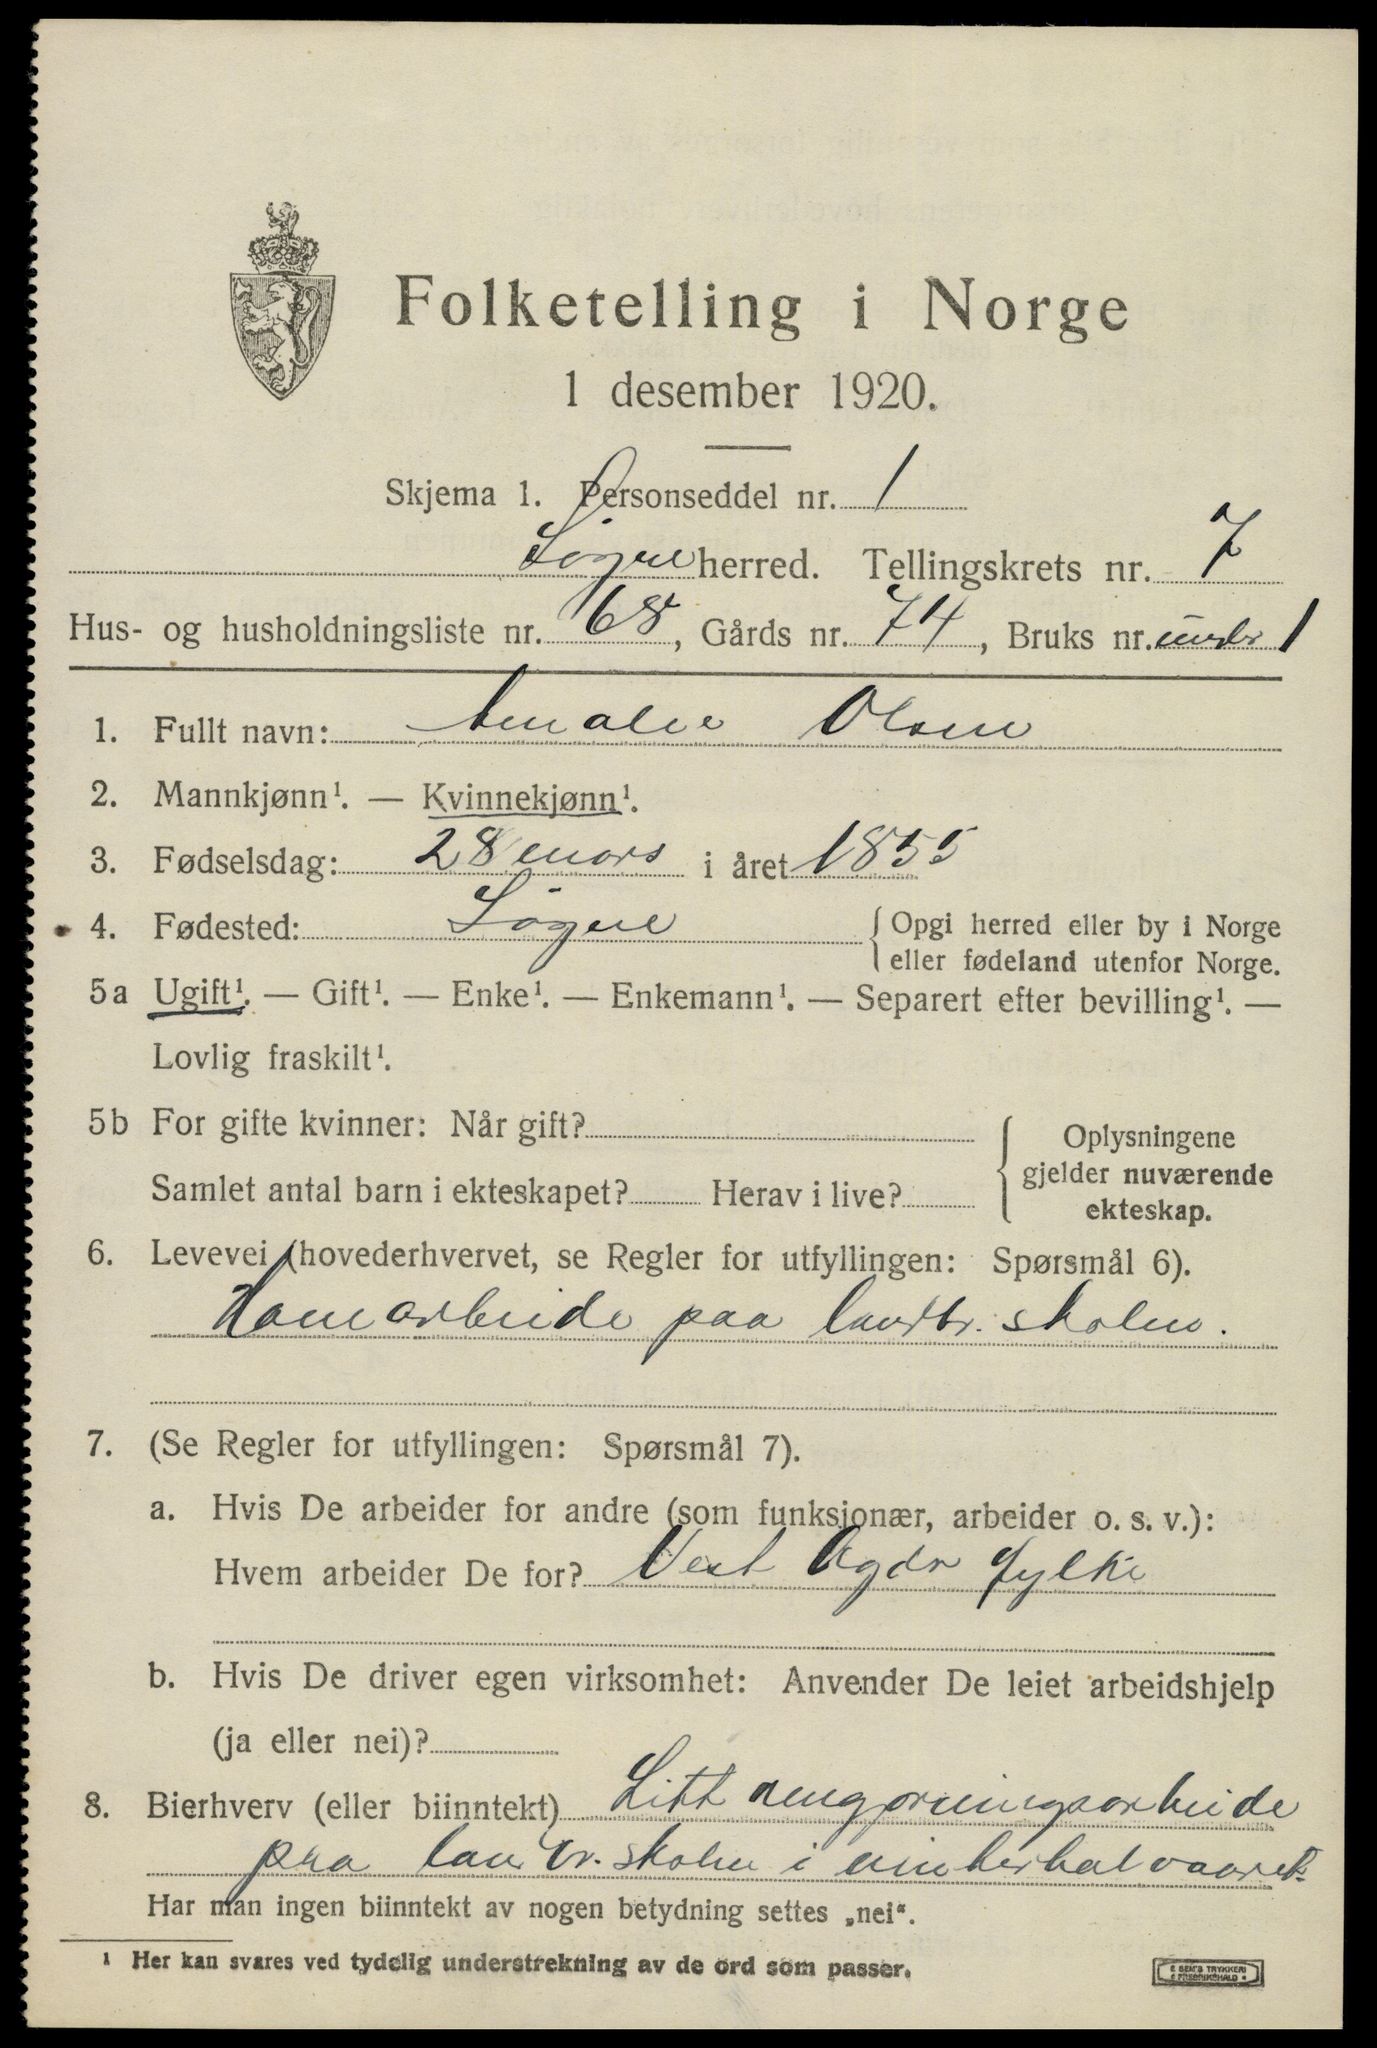 Folketelling i Norge
1 desember 1920.
Skjema 1. Personseddel nr. 1
Søgne herred. Tellingskrets nr. 7
Hus- og husholdningsliste nr. 68, Gårds nr. 74, Bruks nr. under 1
1. Fullt navn: Amalie Olsen
2. Mannkjønn¹. — Kvinnekjønn¹.
3. Fødselsdag: 28 mars i året 1855
4. Fødested: Søgne { Opgi herred eller by i Norge
eller fødeland utenfor Norge.
5a Ugift¹. — Gift¹. — Enke¹. — Enkemann¹. — Separert efter bevilling¹. —
Lovlig fraskilt¹.
5b For gifte kvinner: Når gift? { Oplysningene
gjelder nuværende
Samlet antal barn i ekteskapet? Herav i live?
ekteskap.
6. Levevei (hovederhvervet, se Regler for utfyllingen: Spørsmål 6).
paa landbr. skolen.
7. (Se Regler for utfyllingen: Spørsmål 7).
a. Hvis De arbeider for andre (som funksjonær, arbeider o. s. v.):
Hvem arbeider De for? Vest Agder fylke
b. Hvis De driver egen virksomhet: Anvender De leiet arbeidshjelp
(ja eller nei)?
8. Bierhverv (eller biinntekt) Litt rengjøringsarbeide
paa landbr. skolen i vinterhalvaaret.
Har man ingen biinntekt av nogen betydning settes „nei“.
¹ Her kan svares ved tydelig understrekning av de ord som passer.
E SEM'S TRYKKERI
FREDRIKSHALD